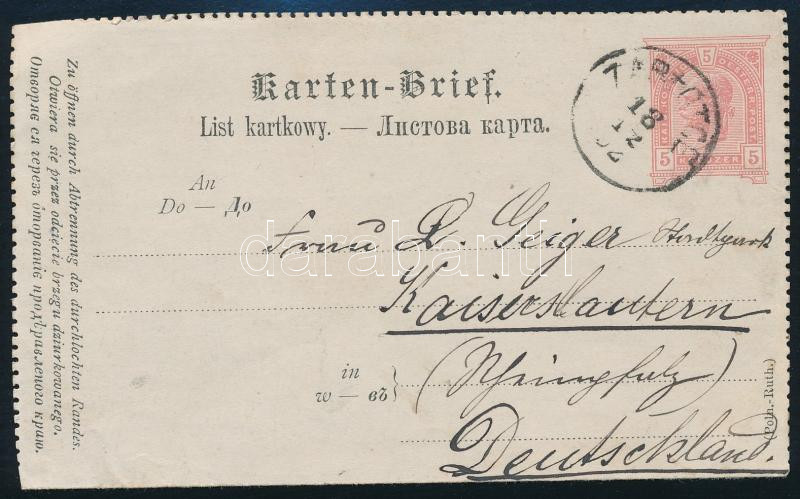 Karten-Brief.
List kartkowy. — Листова карта.
An
Do — До
Frau R. Geiger Stadtpark
Kaiserslautern
in
w — въ
(Rheinpfalz)
Deutschland.
(Poln.-Ruth.)
Zu öffnen durch Abtrennung des durchlochten Randes.
Otwiera się przez odcięcie brzegu dziurkowanego.
Отворяє ся герезъ оторванiє продѣравленого краю.
5 5
5 KREUZER 5
18
12
darabanth